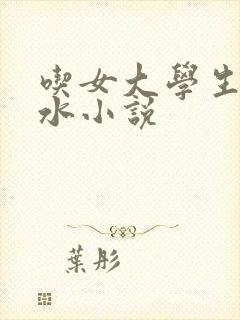 喫女大學生
水小説
葉彤